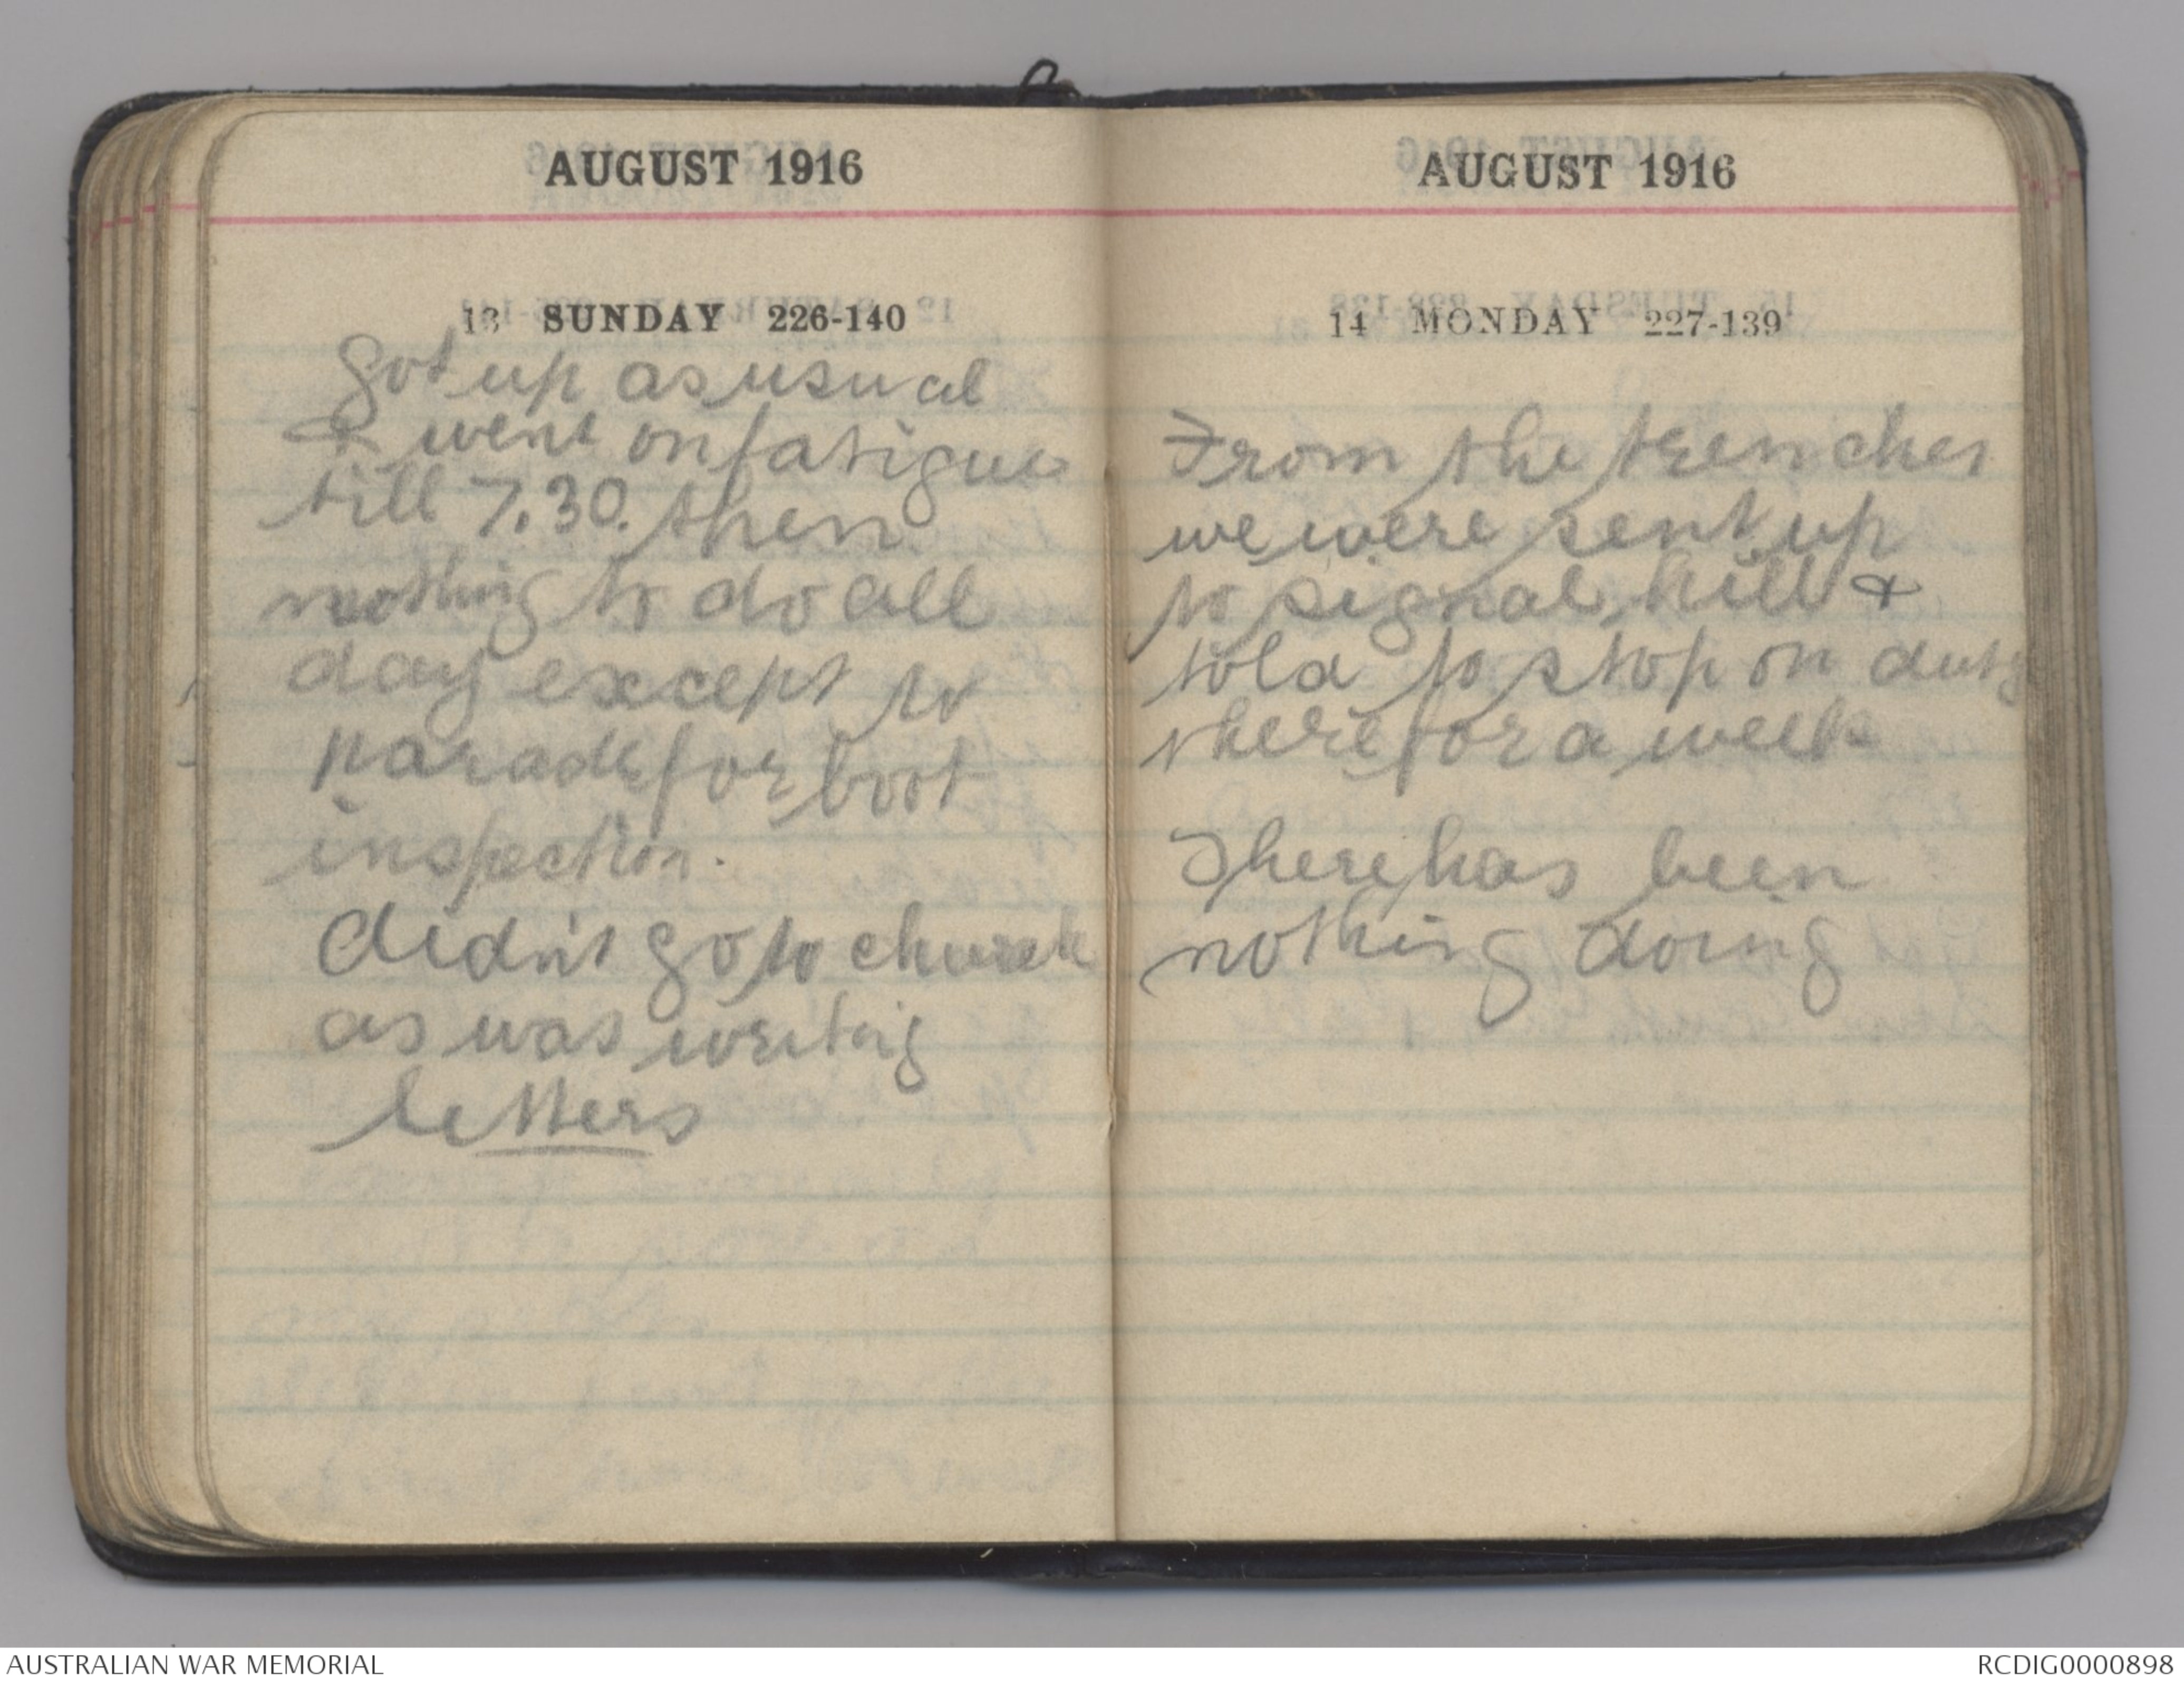 AUGUST 1916
13 SUNDAY 226-140
Got up as usual
& went on fatigue
till 7.30. then
nothing to do all
day except to
parade for boot
inspection.
Didn't go to church
as was writing
letters
AUGUST 1916
14 MONDAY 227-139
From the trenches
we were sent up
to signal hill &
told to stop on duty
there for a week
There has been
nothing doing
AUSTRALIAN WAR MEMORIAL
RCDIG0000898